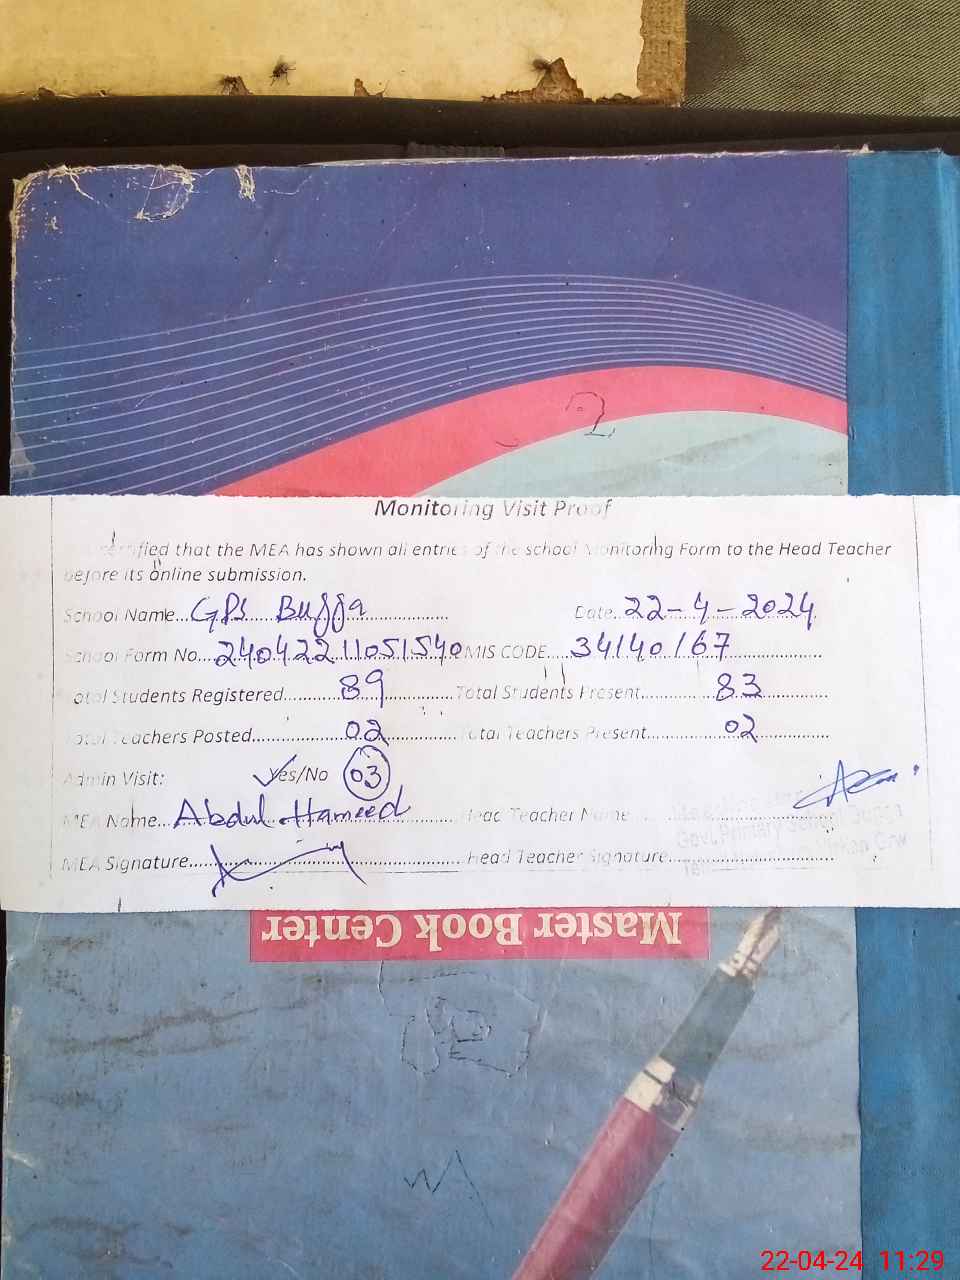 Monitoring Visit Proof
certified that the MEA has shown all entries of the school Monitoring Form to the Head Teacher
before its online submission.
School Name...GPS Bugga... Date. 22-4-2024
School Form No...24042211051540 EMIS CODE...34140167
Total Students Registered...89...Total Students Present...83
Total Teachers Posted...02...Total Teachers Present...02
Admin Visit: Yes/No 03
MEA Name...Abdul Hameed Head Teacher Name
MEA Signature... Head Teacher Signature
Govt. Primary School Bugga
Master Book Center
22-04-24 11:29